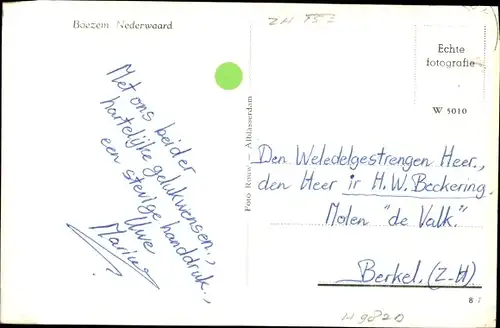 Boezem Nederwaard
ZH
Echte
fotografie
W 5010
Met ons beider
hartelijke gelukwensen.,
een stevige handdruk.,
Uwe
Foto Rouw — Alblasserdam
Den Weledelgestrengen Heer.,
den Heer ir H.W. Beckering
Molen "de Valk."
Berkel. (Z-H).
8-7
H 9820